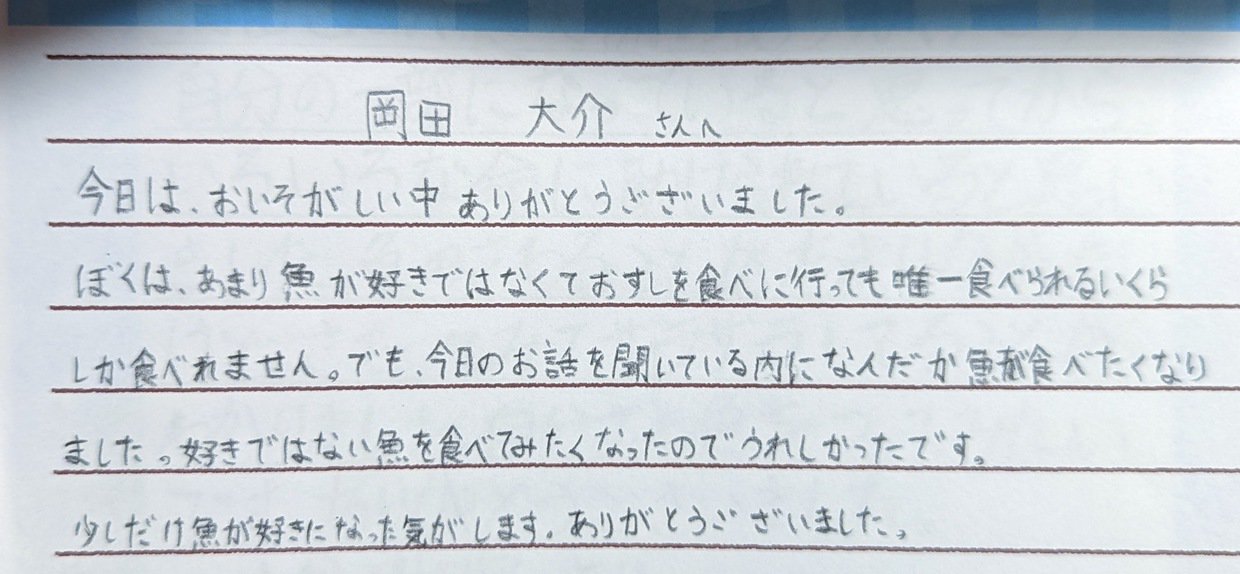 岡田 大介 さんへ
今日は、おいそがしい中ありがとうございました。
ぼくは、あまり魚が好きではなくておすしを食べに行っても唯一食べられるいくら
しか食べれません。でも、今日のお話を聞いている内になんだか魚が食べたくなり
ました。好きではない魚を食べてみたくなったのでうれしかったです。
少しだけ魚が好きになった気がします。ありがとうございました。